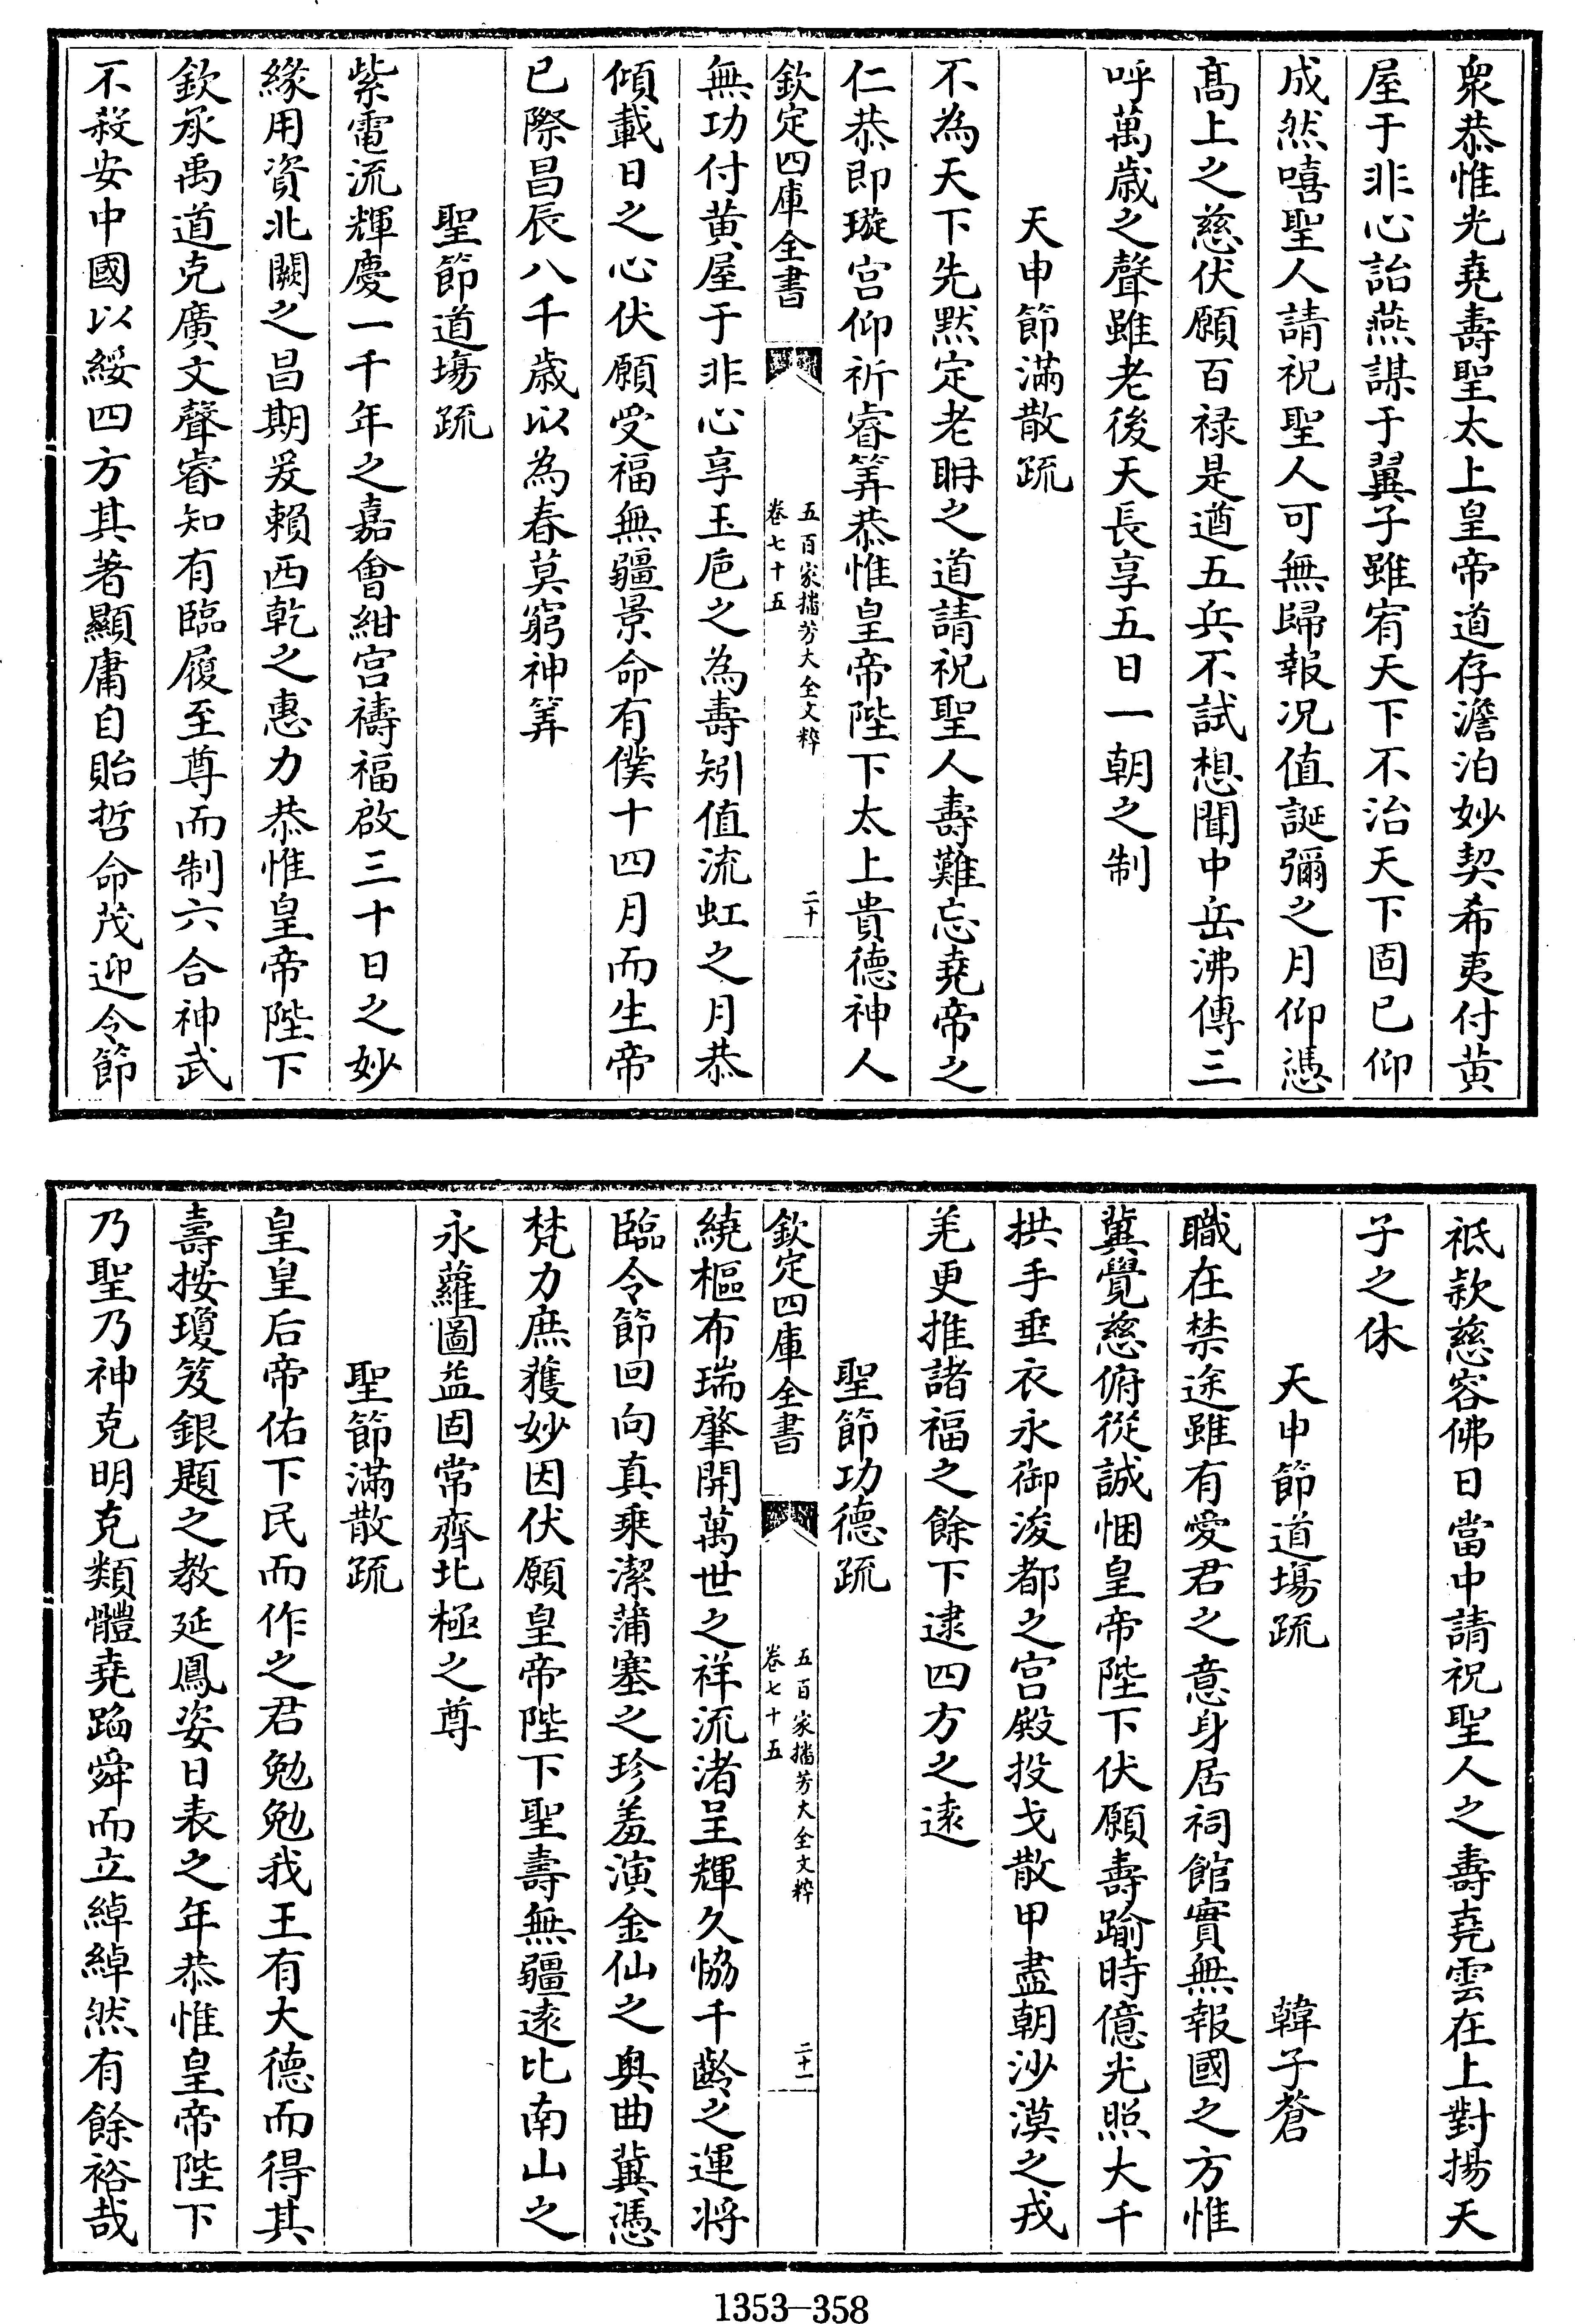 衆恭惟光堯壽聖太上皇帝道存澹泊妙契希夷付黄
屋于非心詒燕謀于翼子雖宥天下不治天下固已仰
成然嘻聖人請祝聖人可無歸報况值誕彌之月仰憑
髙上之慈伏願百禄是遒五兵不試想聞中岳沸傳三
呼萬歲之聲雖老後天長享五日一朝之制
天申節滿散疏
不為天下先黙定老耼之道請祝聖人壽難忘堯帝之
仁恭即璇宫仰祈睿筭恭惟皇帝陛下太上貴德神人
欽定四庫全書
五百家播芳大全文粹
卷七十五
二十
無功付黄屋于非心享玉巵之為壽矧值流虹之月恭
傾載日之心伏願受福無疆景命有僕十四月而生帝
已際昌辰八千歲以為春莫窮神筭
聖節道場疏
紫電流輝慶一千年之嘉㑹紺宫禱福啟三十日之妙
緣用資北闕之昌期爰賴西乾之惠力恭惟皇帝陛下
欽承禹道克廣文聲睿知有臨履至尊而制六合神武
不殺安中國以綏四方其著顯庸自貽哲命茂迎令節
祗款慈容佛日當中請祝聖人之壽堯雲在上對揚天
子之休
天申節道場疏
韓子蒼
職在禁途雖有愛君之意身居祠館實無報國之方惟
冀覺慈俯從誠悃皇帝陛下伏願壽踰時億光照大千
拱手垂衣永御浚都之宫殿投戈散甲盡朝沙漠之戎
羌更推諸福之餘下逮四方之逺
聖節功德疏
欽定四庫全書
五百家播芳大全文粹
卷七十五
二十一
繞樞布瑞肇開萬世之祥流渚呈輝久恊千齡之運将
臨令節回向真乗潔蒲塞之珍羞演金仙之奥曲冀憑
梵力庶獲妙因伏願皇帝陛下聖壽無疆逺比南山之
永蘿圖益固常齊北極之尊
聖節滿散疏
皇皇后帝佑下民而作之君勉勉我王有大德而得其
壽按瓊笈銀題之教延鳳姿日表之年恭惟皇帝陛下
乃聖乃神克明克類體堯蹈舜而立綽綽然有餘裕哉
1353—358